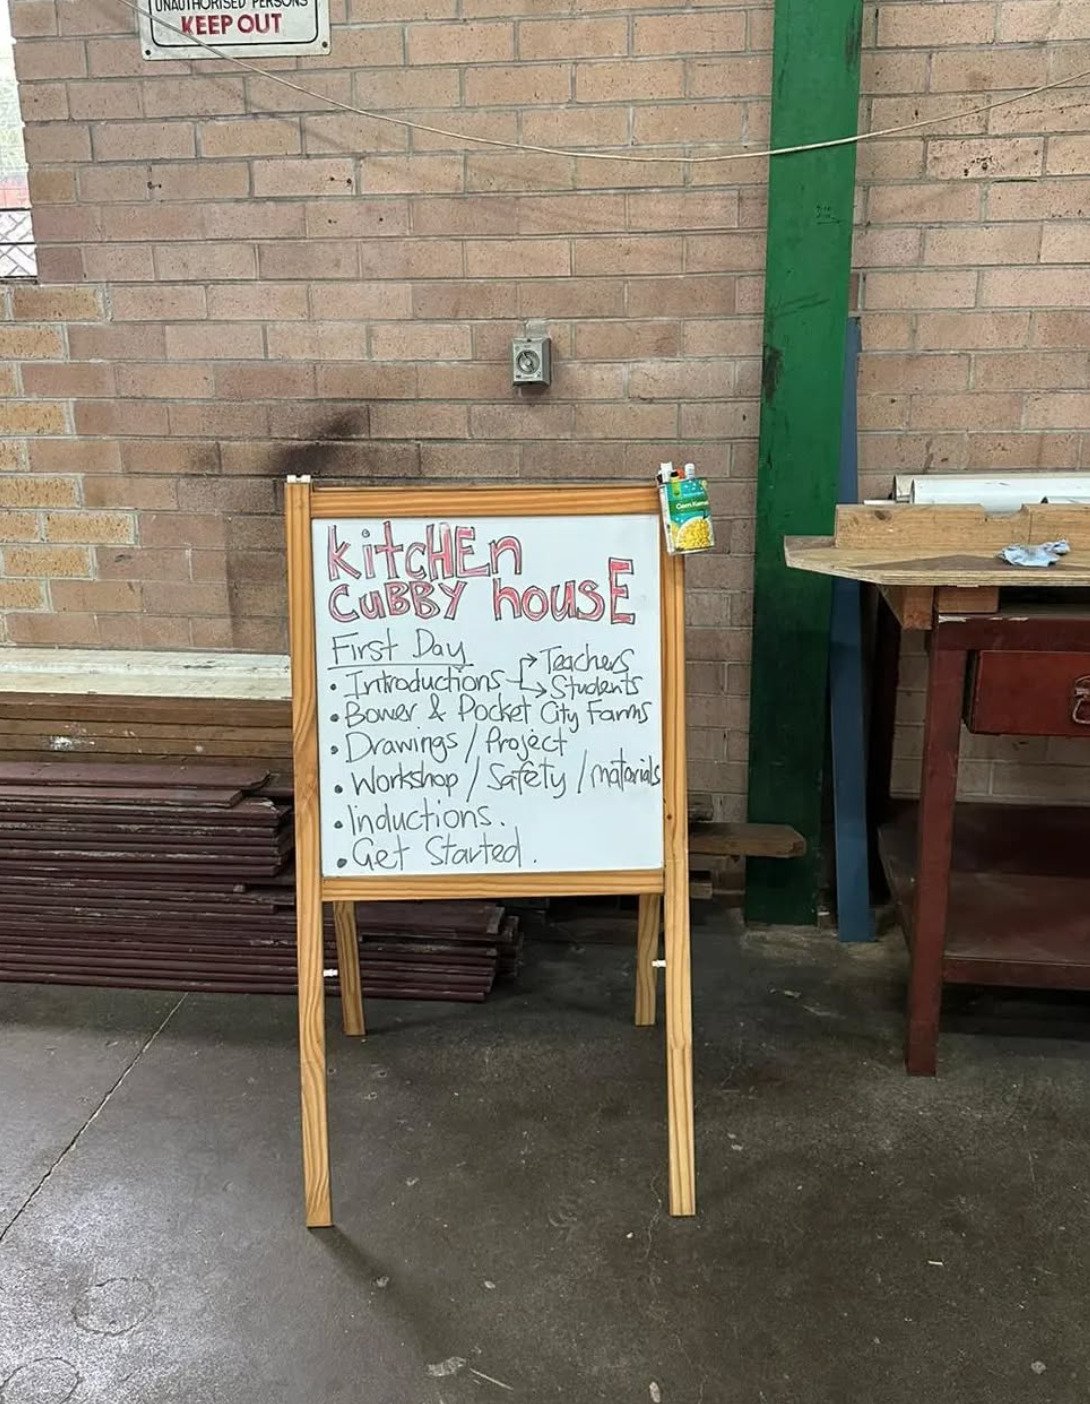 UNAUTHORISED PERSONS
KEEP OUT
Corn Kernels
KitCHEn
CuBBY housE
First Day
• Introductions → Teachers
→ Students
• Bower & Pocket City Farms
• Drawings / Project
• Workshop / Safety / materials
• Inductions.
• Get Started.